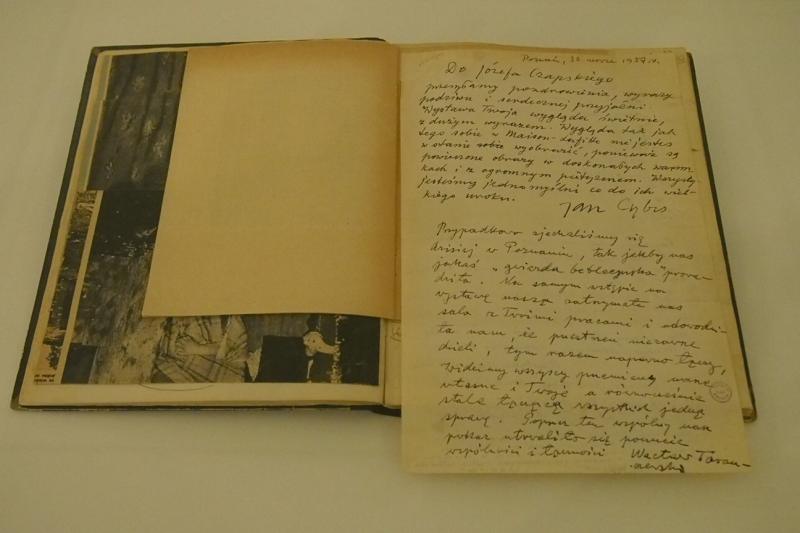 Poznań, 1957 r.
Do Józefa Czapskiego
przesyłamy pozdrowienia, wyrazy
podziwu i serdecznej przyjaźni.
Wystawa Twoja wygląda świetnie,
z dużym wyrazem. Wygląda tak jak
tego sobie w Maison-Lafitte nie jesteś
w stanie sobie wyobrazić, ponieważ są
powieszone obrazy w doskonałych warun
kach i z ogromnym pietyzmem. Wszyscy
jesteśmy jednomyślni co do ich wiel-
kiego uroku.
Jan Cybis
Przypadkowo zjechaliśmy się
dzisiaj w Poznaniu, tak jakby nas
jakaś "gwiazda betlejemska" prowa-
dziła. Na samym wstępie na
wystawę naszą zatrzymała nas
sala z Twoimi pracami i udowodni-
ła nam, że przestrzeń nie zawsze
dzieli, tym razem naprawdę łączy,
widzimy wszyscy przemiany
własne i Twoje a równocześnie
stale łączącą wszystkich jedną
sprawę. Poprzez ten wspólny nasz
pokaz utrwaliło się poczucie
wspólności i łączności
Wacław Taran-
czewski